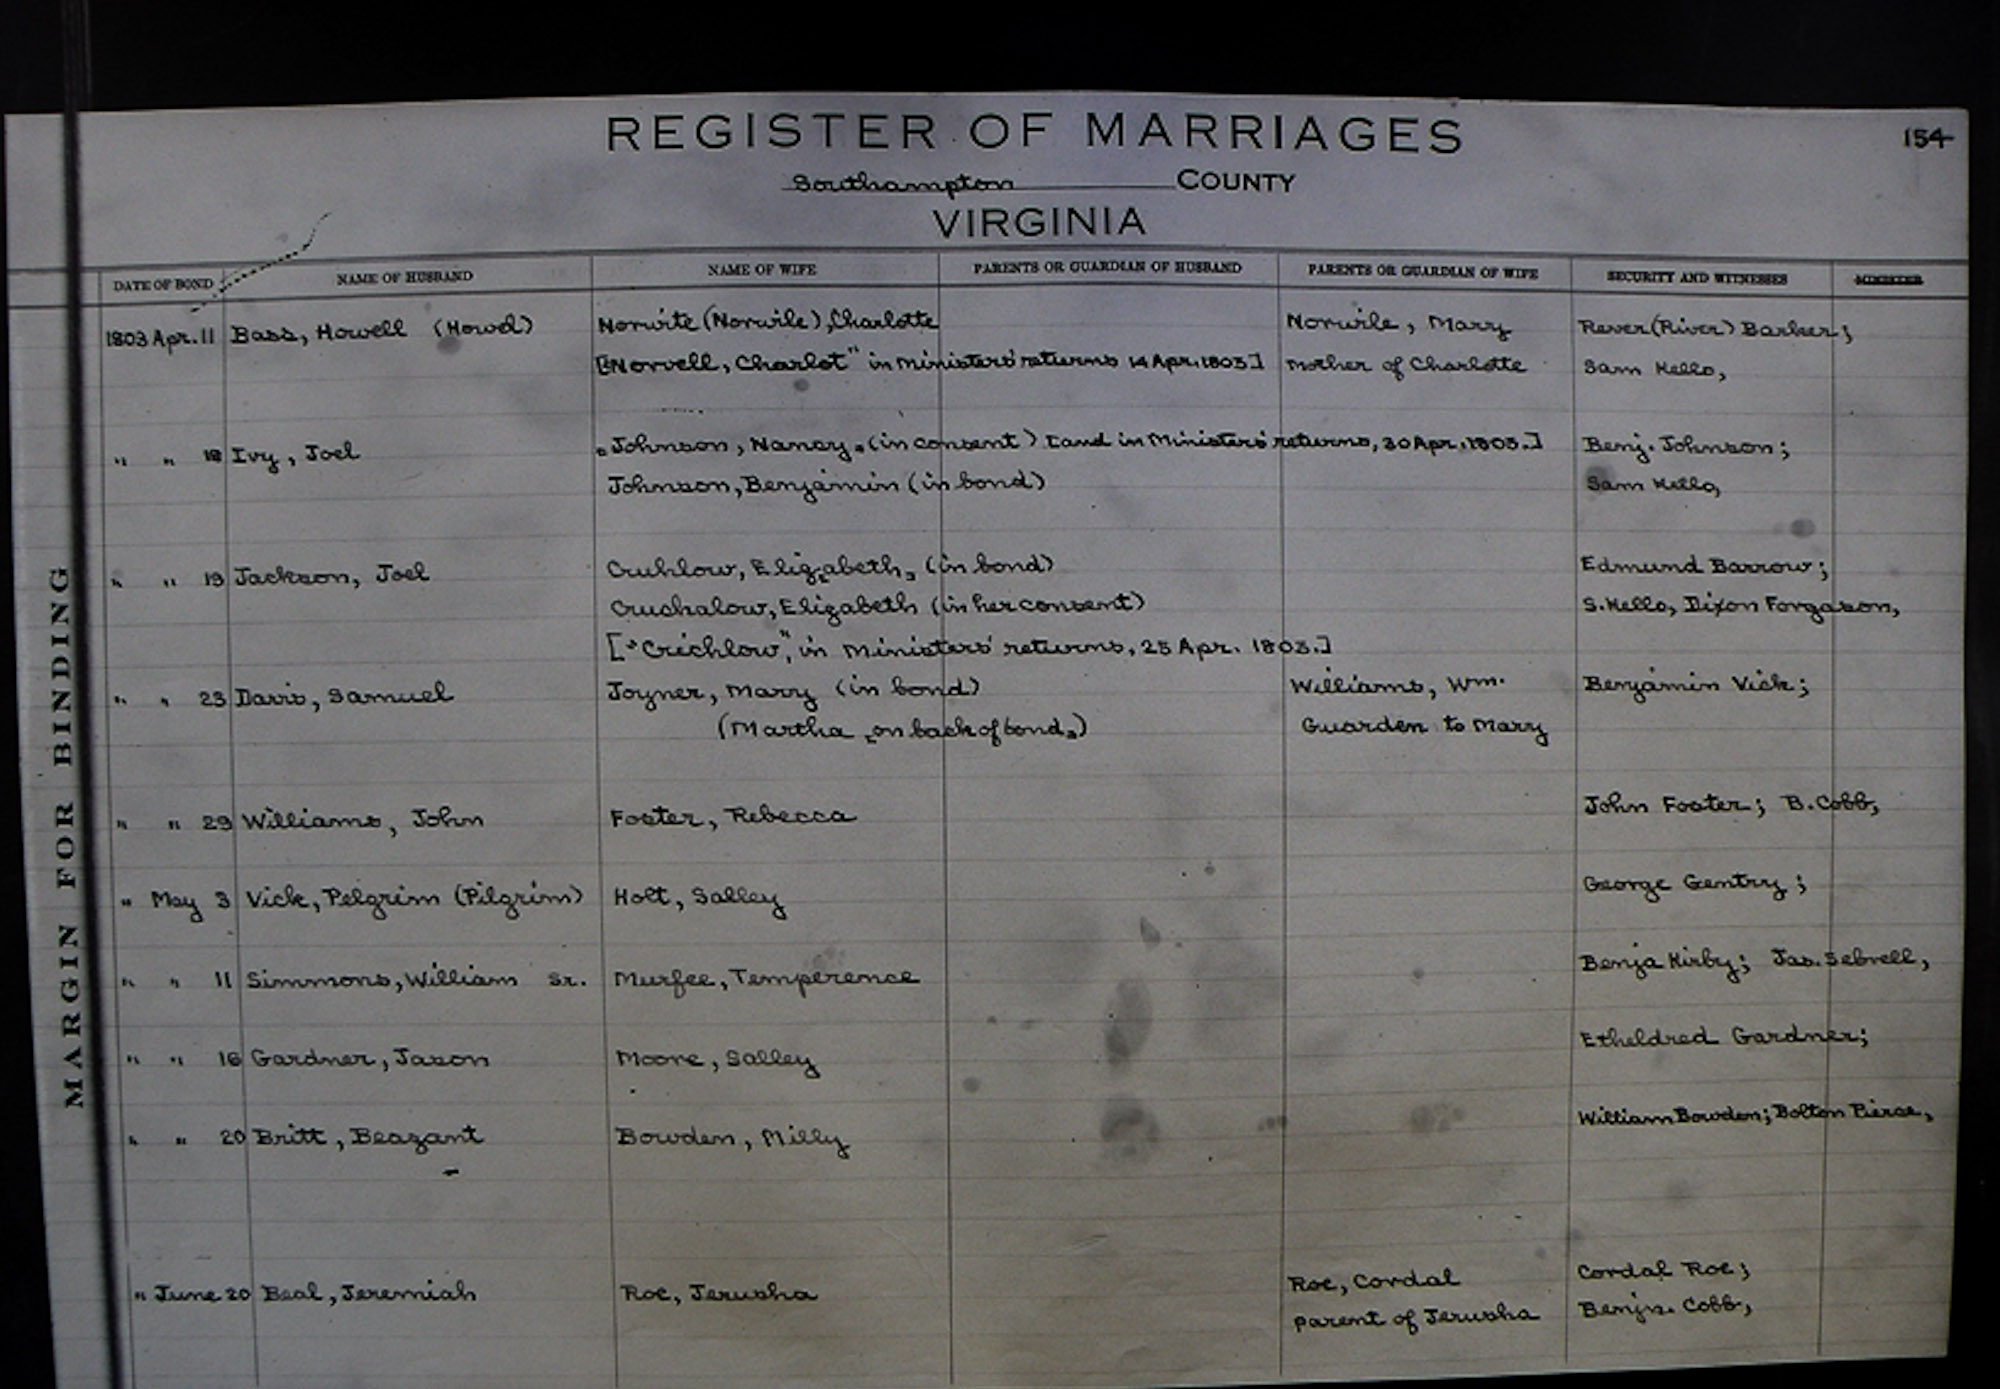 REGISTER OF MARRIAGES
154
Southampton COUNTY
VIRGINIA
DATE OF BOND NAME OF HUSBAND NAME OF WIFE PARENTS OR GUARDIAN OF HUSBAND PARENTS OR GUARDIAN OF WIFE SECURITY AND WITNESSES MINISTER
1803 Apr. 11 Bass, Howell (Howel) Norwite (Norwile), Charlotte Norwile, Mary Rever (River) Barker;
["Norvell, Charlot" in Ministers' returns 14 Apr. 1803] mother of Charlotte Sam Kello,
" " 18 Ivy, Joel "Johnson, Nancy" (in consent) [and in Ministers' returns, 30 Apr. 1803.] Benj. Johnson;
Johnson, Benjamin (in bond) Sam Kello,
" " 19 Jackson, Joel Cruhlow, Elizabeth, (in bond) Edmund Barrow;
Cruchalow, Elizabeth (in her consent) S. Kello, Dixon Forgason,
["Crichlow", in Ministers' returns, 25 Apr. 1803.]
" " 23 Davis, Samuel Joyner, Mary (in bond) Williams, Wm. Benjamin Vick;
(Martha "on back of bond") Guarden to Mary
" " 29 Williams, John Foster, Rebecca John Foster; B. Cobb,
" May 3 Vick, Pelgrim (Pilgrim) Holt, Salley George Gentry;
" " 11 Simmons, William Sr. Murfee, Temperence Benja Kirby; Jas. Sebrell,
" " 16 Gardner, Jason Moore, Salley Etheldred Gardner;
" " 20 Britt, Beazant Bowden, Milly William Bowden; Bolton Pierce,
" June 20 Beal, Jeremiah Roe, Jerusha Roe, Cordal Cordal Roe;
parent of Jerusha Benjn. Cobb,
MARGIN FOR BINDING